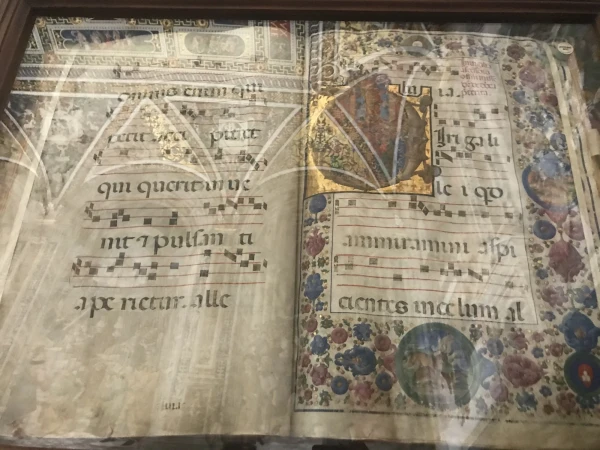 omnis enim qui
petit acci pit
qui querit in ue
nit ⁊ pulsan ti
ape rietur. alle
lu ia.
iri ga li
le i qd
ammiramini aspi
cientes in celum al